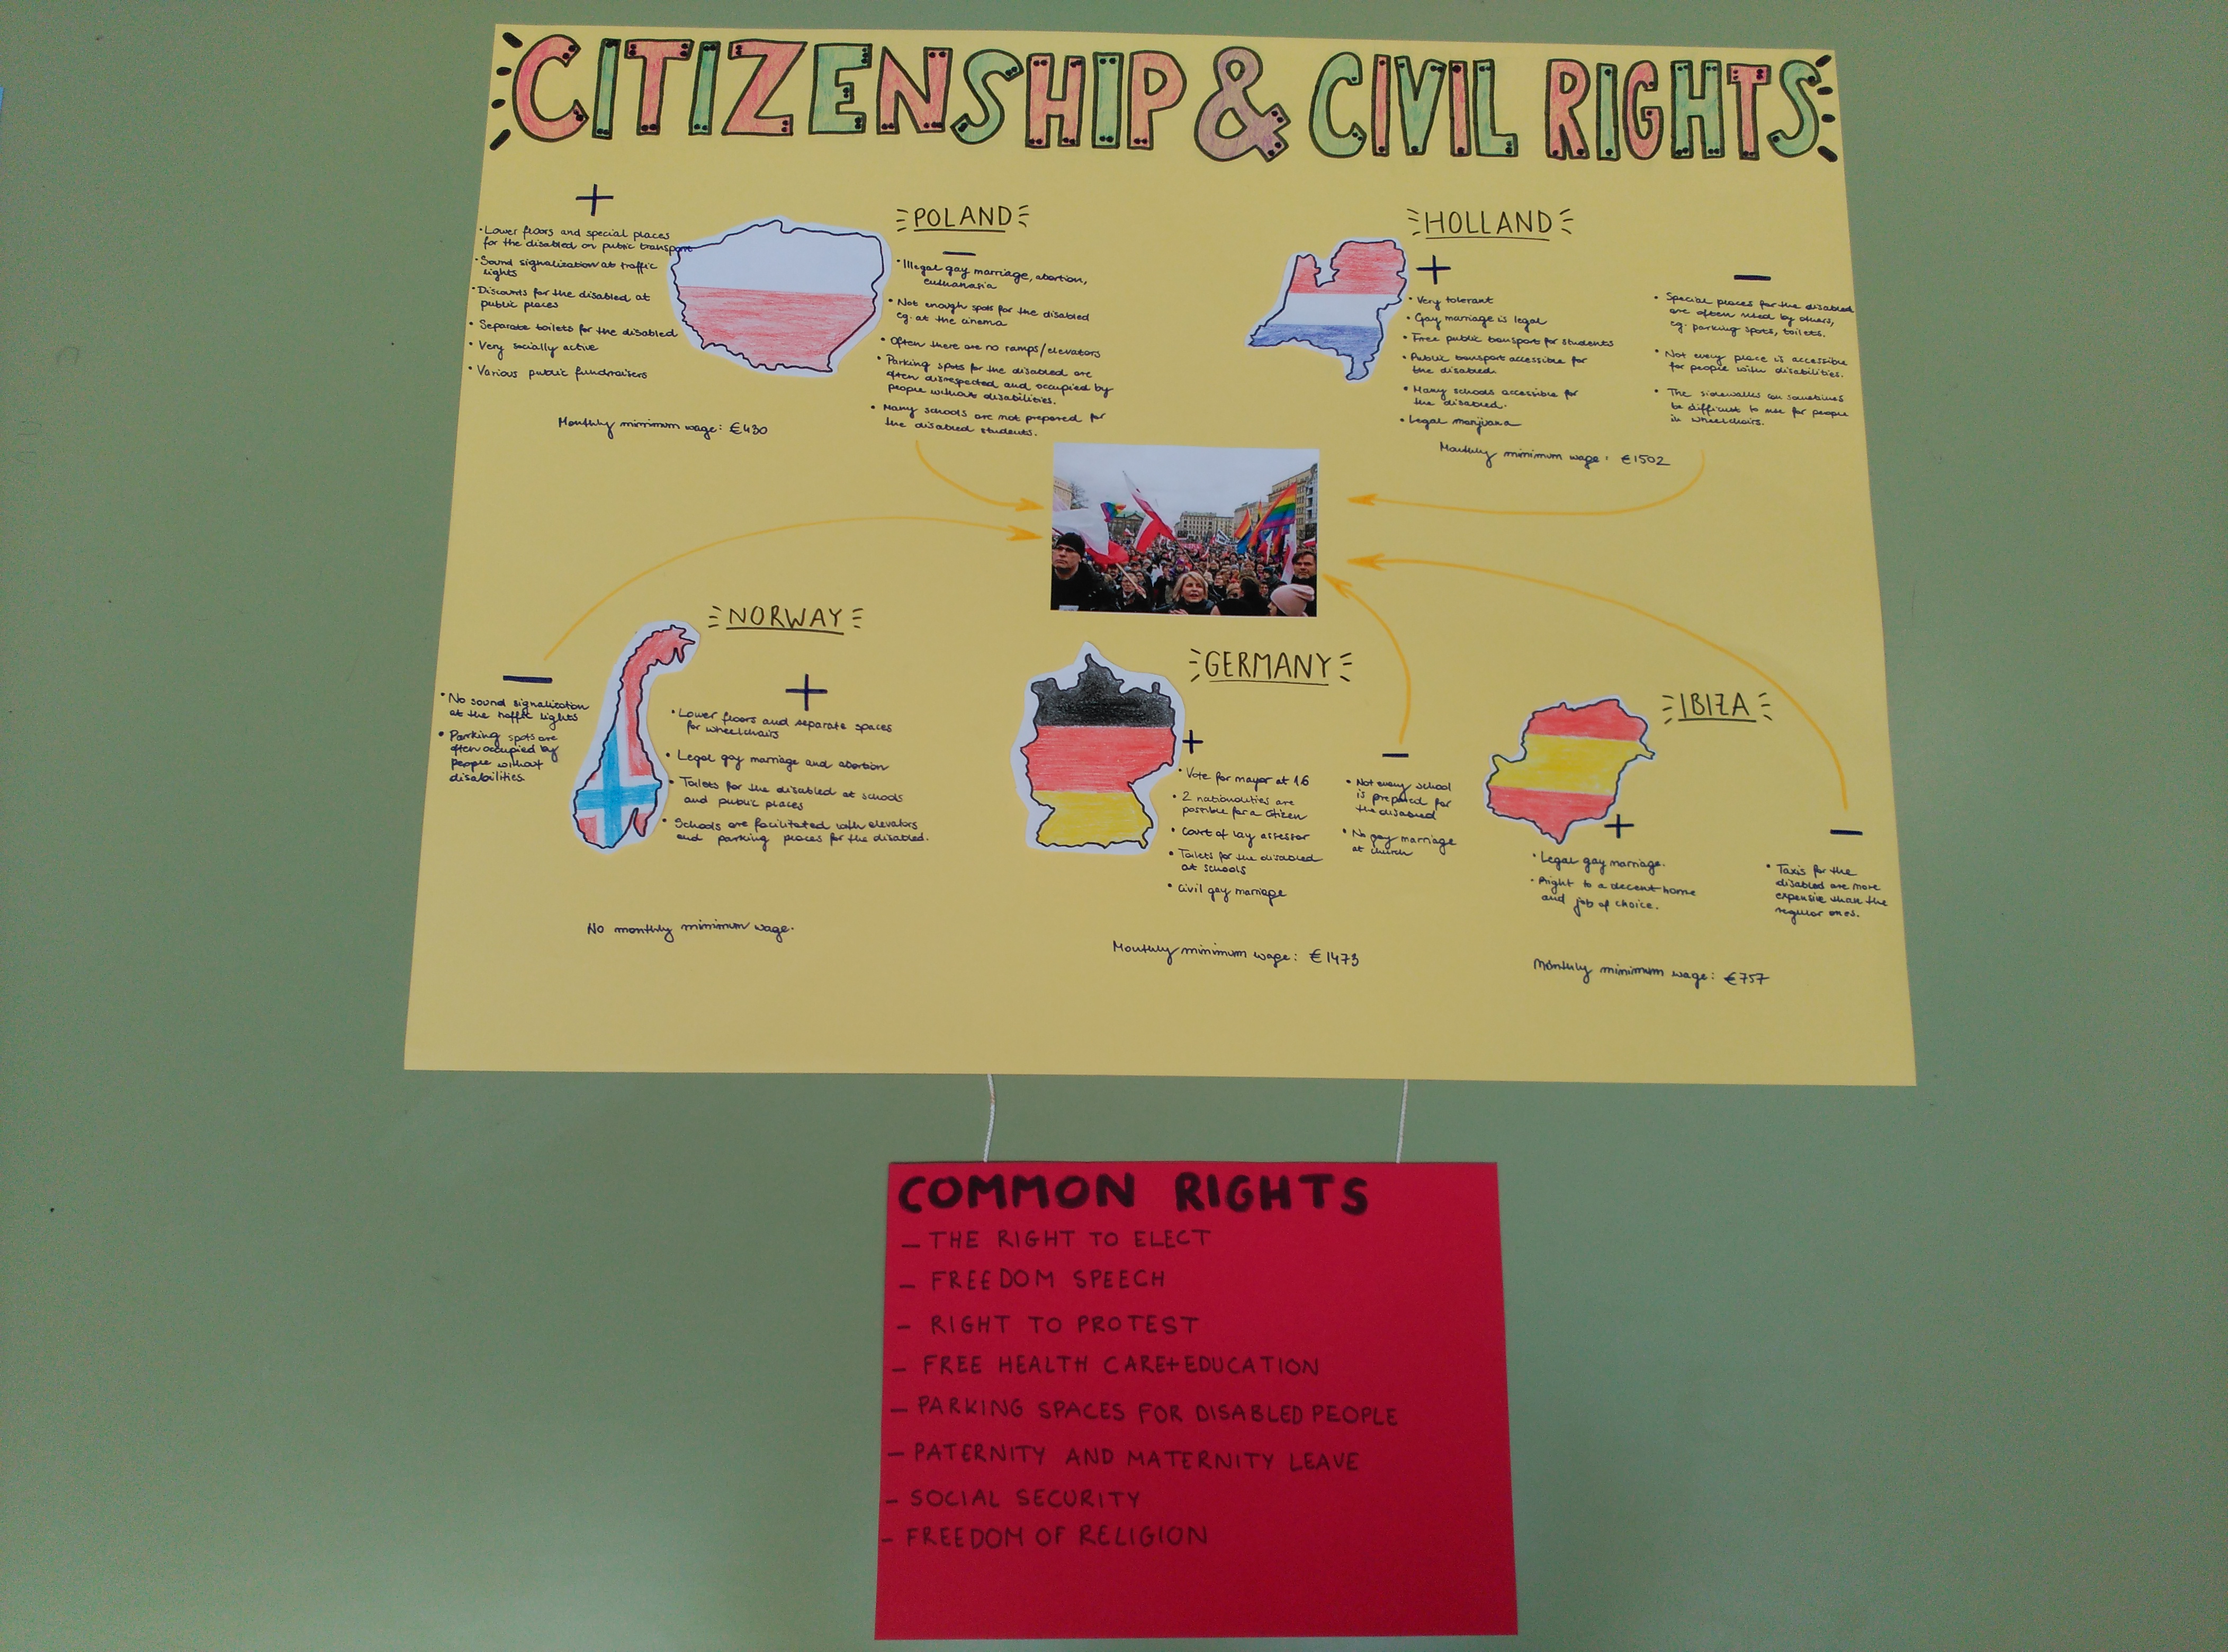 CITIZENSHIP & CIVIL RIGHTS
+
• Lower floors and special places
for the disabled on public transport
• Sound signalization at traffic
lights
• Discounts for the disabled at
public places
• Separate toilets for the disabled
• Very socially active
• Various public fundraisers
Monthly minimum wage: €430
POLAND
—
• Illegal gay marriage, abortion,
euthanasia
• Not enough spots for the disabled
eg. at the cinema
• Often there are no ramps/elevators
• Parking spots for the disabled are
often disrespected and occupied by
people without disabilities.
• Many schools are not prepared for
the disabled students.
HOLLAND
+
• Very tolerant
• Gay marriage is legal
• Free public transport for students
• Public transport accessible for
the disabled.
• Many schools accessible for
the disabled.
• Legal marijuana
Monthly minimum wage: €1502
—
• Special places for the disabled
are often used by others,
eg. parking spots, toilets.
• Not every place is accessible
for people with disabilities.
• The sidewalks can sometimes
be difficult to use for people
in wheelchairs.
NORWAY
—
• No sound signalization
at the traffic lights
• Parking spots are
often occupied by
people without
disabilities.
+
• Lower floors and separate spaces
for wheelchairs
• Legal gay marriage and abortion
• Toilets for the disabled at schools
and public places
• Schools are facilitated with elevators
and parking places for the disabled.
No monthly minimum wage.
GERMANY
+
• Vote for mayor at 16
• 2 nationalities are
possible for a citizen
• Court of lay assessor
• Toilets for the disabled
at schools
• Civil gay marriage
—
• Not every school
is prepared for
the disabled
• No gay marriage
at church
Monthly minimum wage: €1473
IBIZA
+
• Legal gay marriage.
• Right to a decent home
and job of choice.
—
• Taxis for the
disabled are more
expensive than the
regular ones.
Monthly minimum wage: €757
COMMON RIGHTS
— THE RIGHT TO ELECT
— FREEDOM SPEECH
— RIGHT TO PROTEST
— FREE HEALTH CARE+EDUCATION
— PARKING SPACES FOR DISABLED PEOPLE
— PATERNITY AND MATERNITY LEAVE
— SOCIAL SECURITY
— FREEDOM OF RELIGION